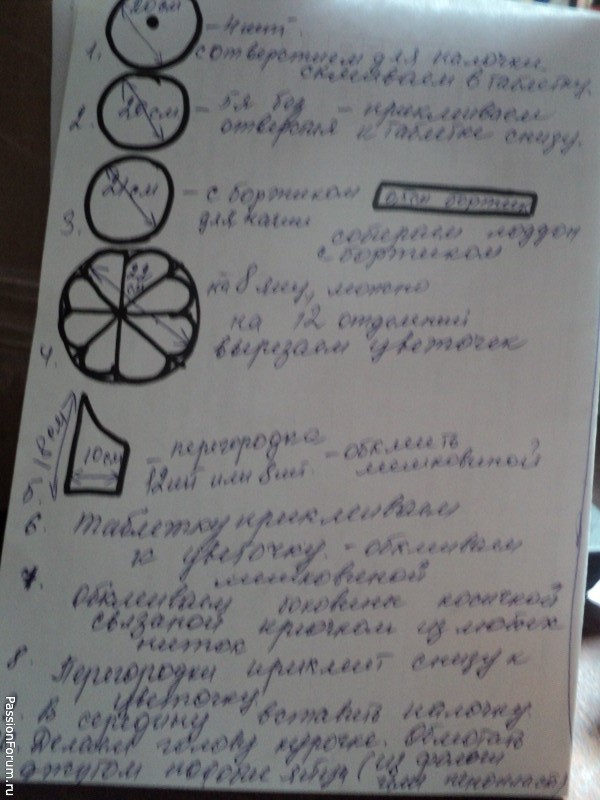 20см
1. - 4шт
с отверстием для палочки
склеиваем в таблетку.
2. 20см - 5я без - приклеиваем
отверстия к таблетке снизу.
3. 21см - с бортиком
для кашпо
собираем поддон
с бортиком
22
см
4. на 8 яиц, можно
на 12 отделений
вырезаем цветочек
5. 18см
10см
- перегородка
12шт или 8шт. - обклеить
мешковиной
6. Таблетку приклеиваем
к цветочку. - обклеиваем
мешковиной
7. Обклеиваем боковины косичкой
связаной крючком из любых
ниток
8. Перегородки приклеит снизу к
цветочку
в середину вставить палочку.
Делаем голову курочке. Обмотать
джутом подобие яйца (из фольги
или пенопласт)
PassionForum.ru